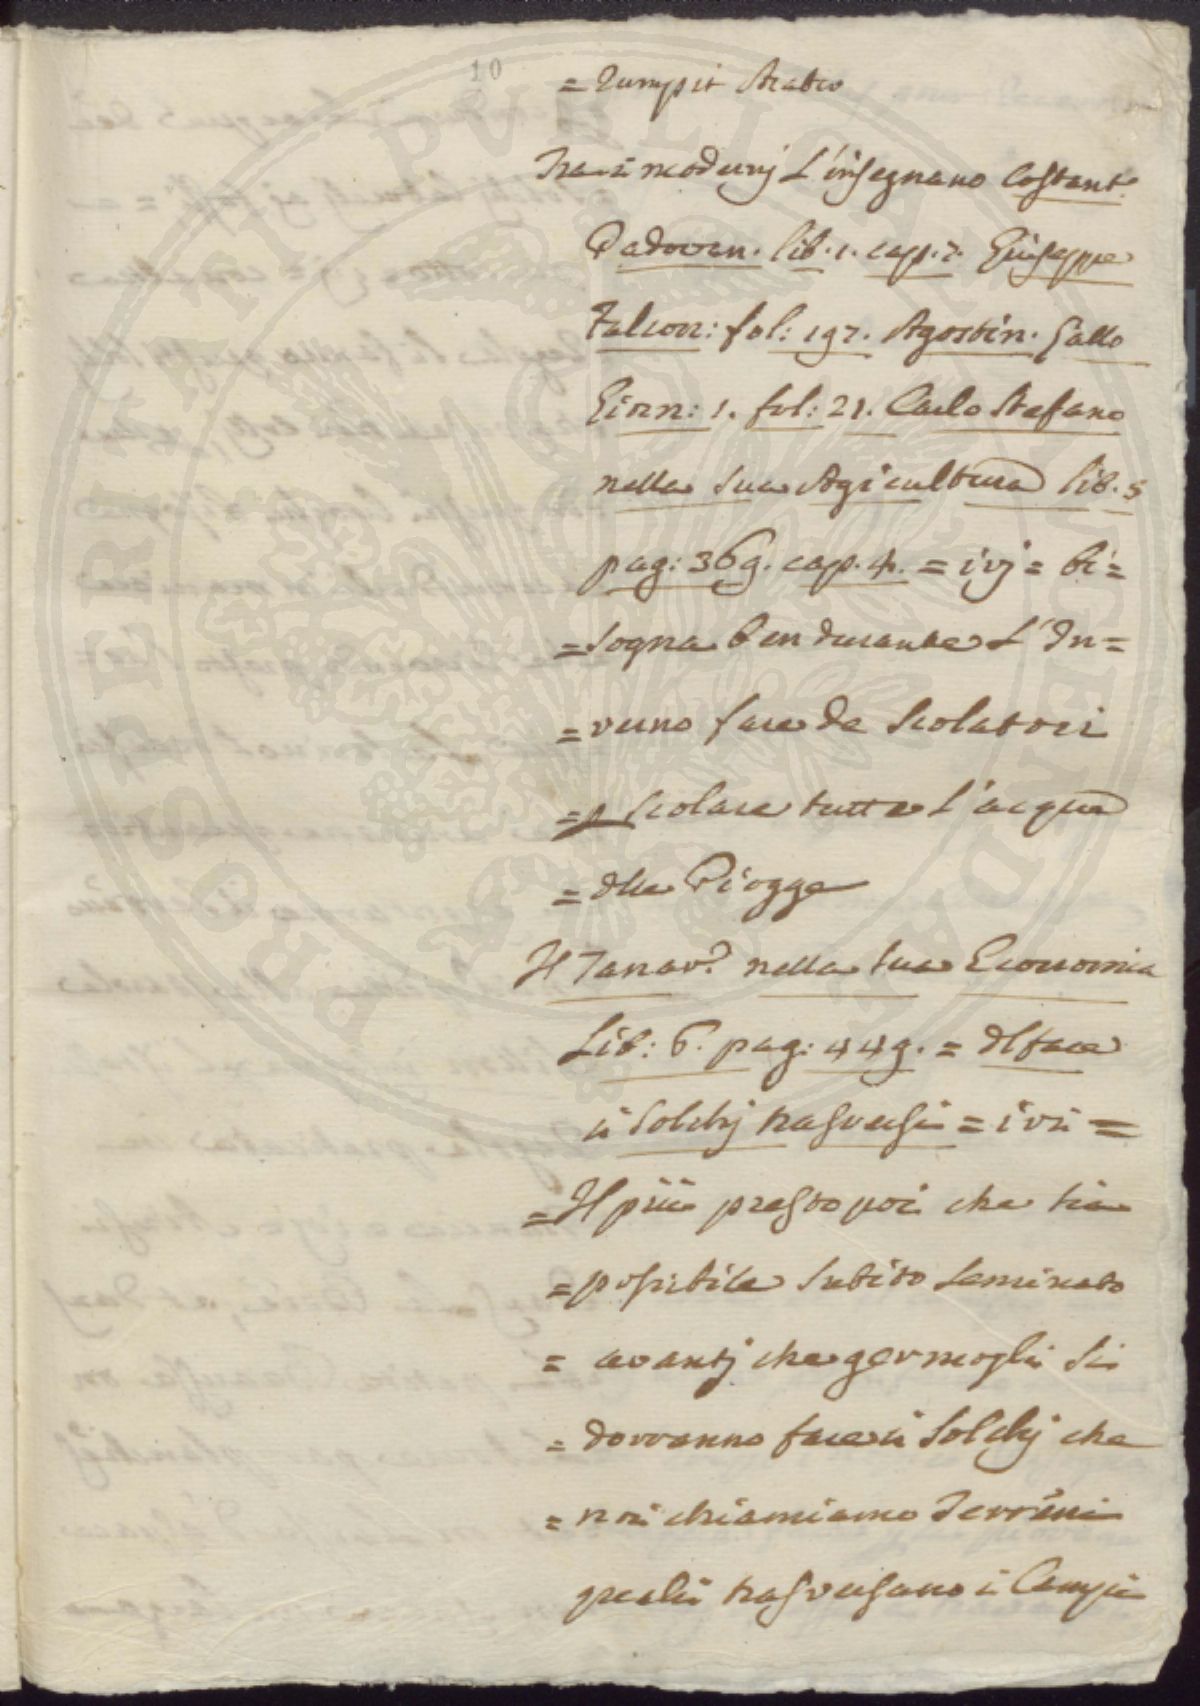 10
= rumpit Aratro
Tra i modernj L'insegnano Costant.
Padovan. lib. 1. cap. 7. Giuseppe
Falcon: fol: 197. Agostin. Gallo
Giorn: 1. fol: 21. Carlo Stefano
nella sua Agricultura lib. 5
pag: 369. cap. 4. = ivj = bi=
=sogna ben durante L'In=
=verno fare de Scolatori
=p scolare tutta l'acqua
=dlle Piogge
Il Tanar.ᵃ nella sua Economia
Lib: 6. pag: 449. = dl fare
i Solchj trasversi = ivi =
=Il più presto poi che sia
=possibile subito seminato
= avantj che germogli si
= dovranno fare i Solchj che
= noi chiamiamo
quali trasversano i Campi
PROSPERITATI PVBLICAE AVGENDAE